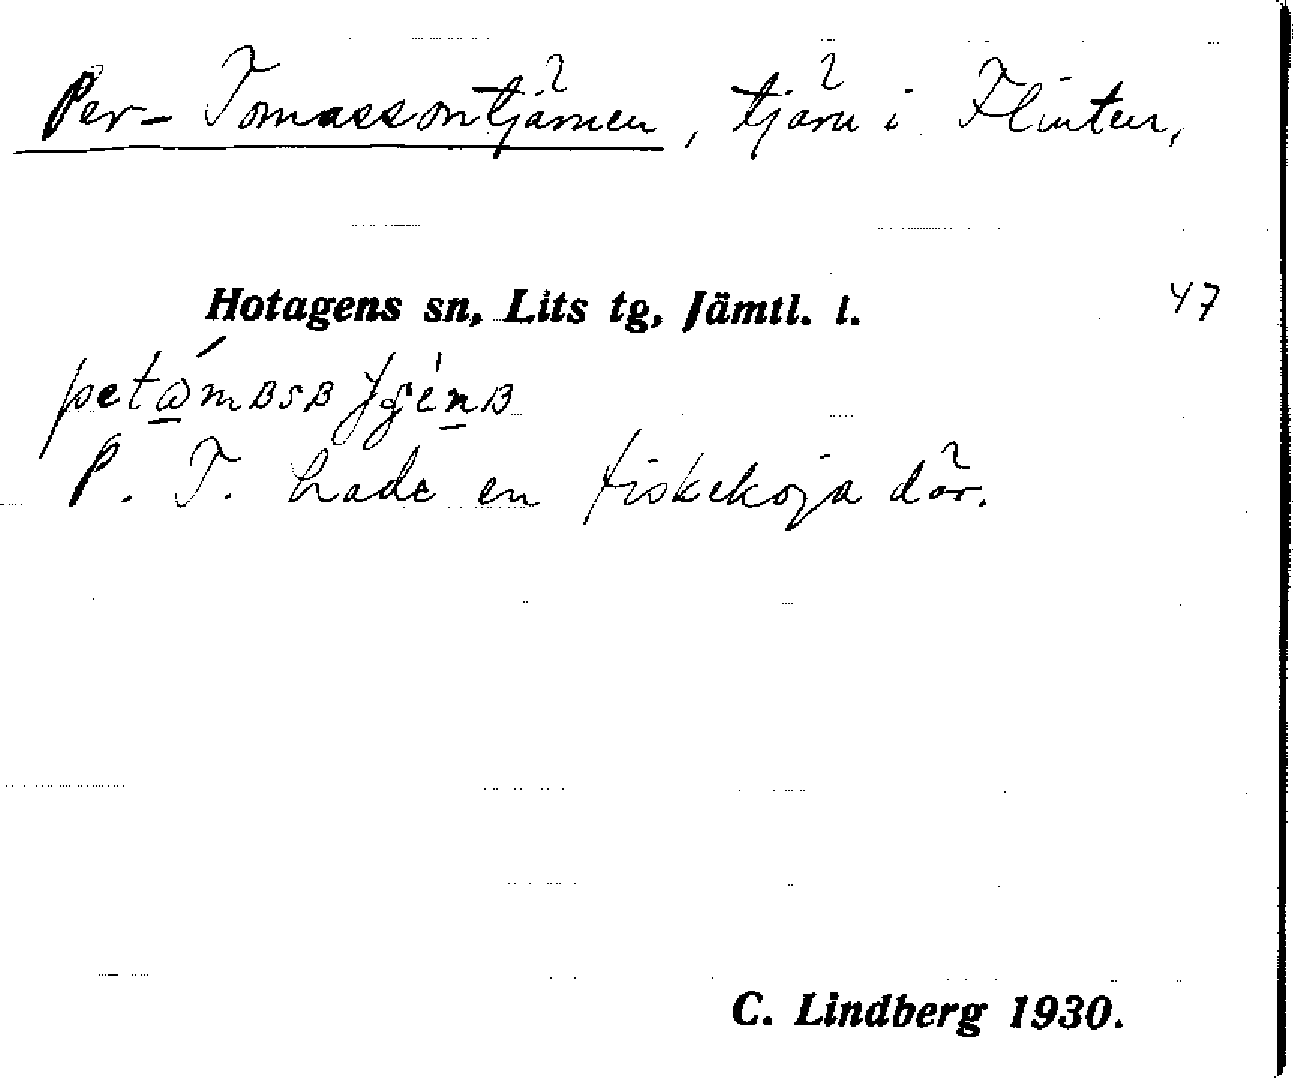 Per-Tomassontjärnen, tjärn i Flinten,
Hotagens sn, Lits tg, Jämtl. l.
47
P. T. hade en fiskekoja där.
C. Lindberg 1930.